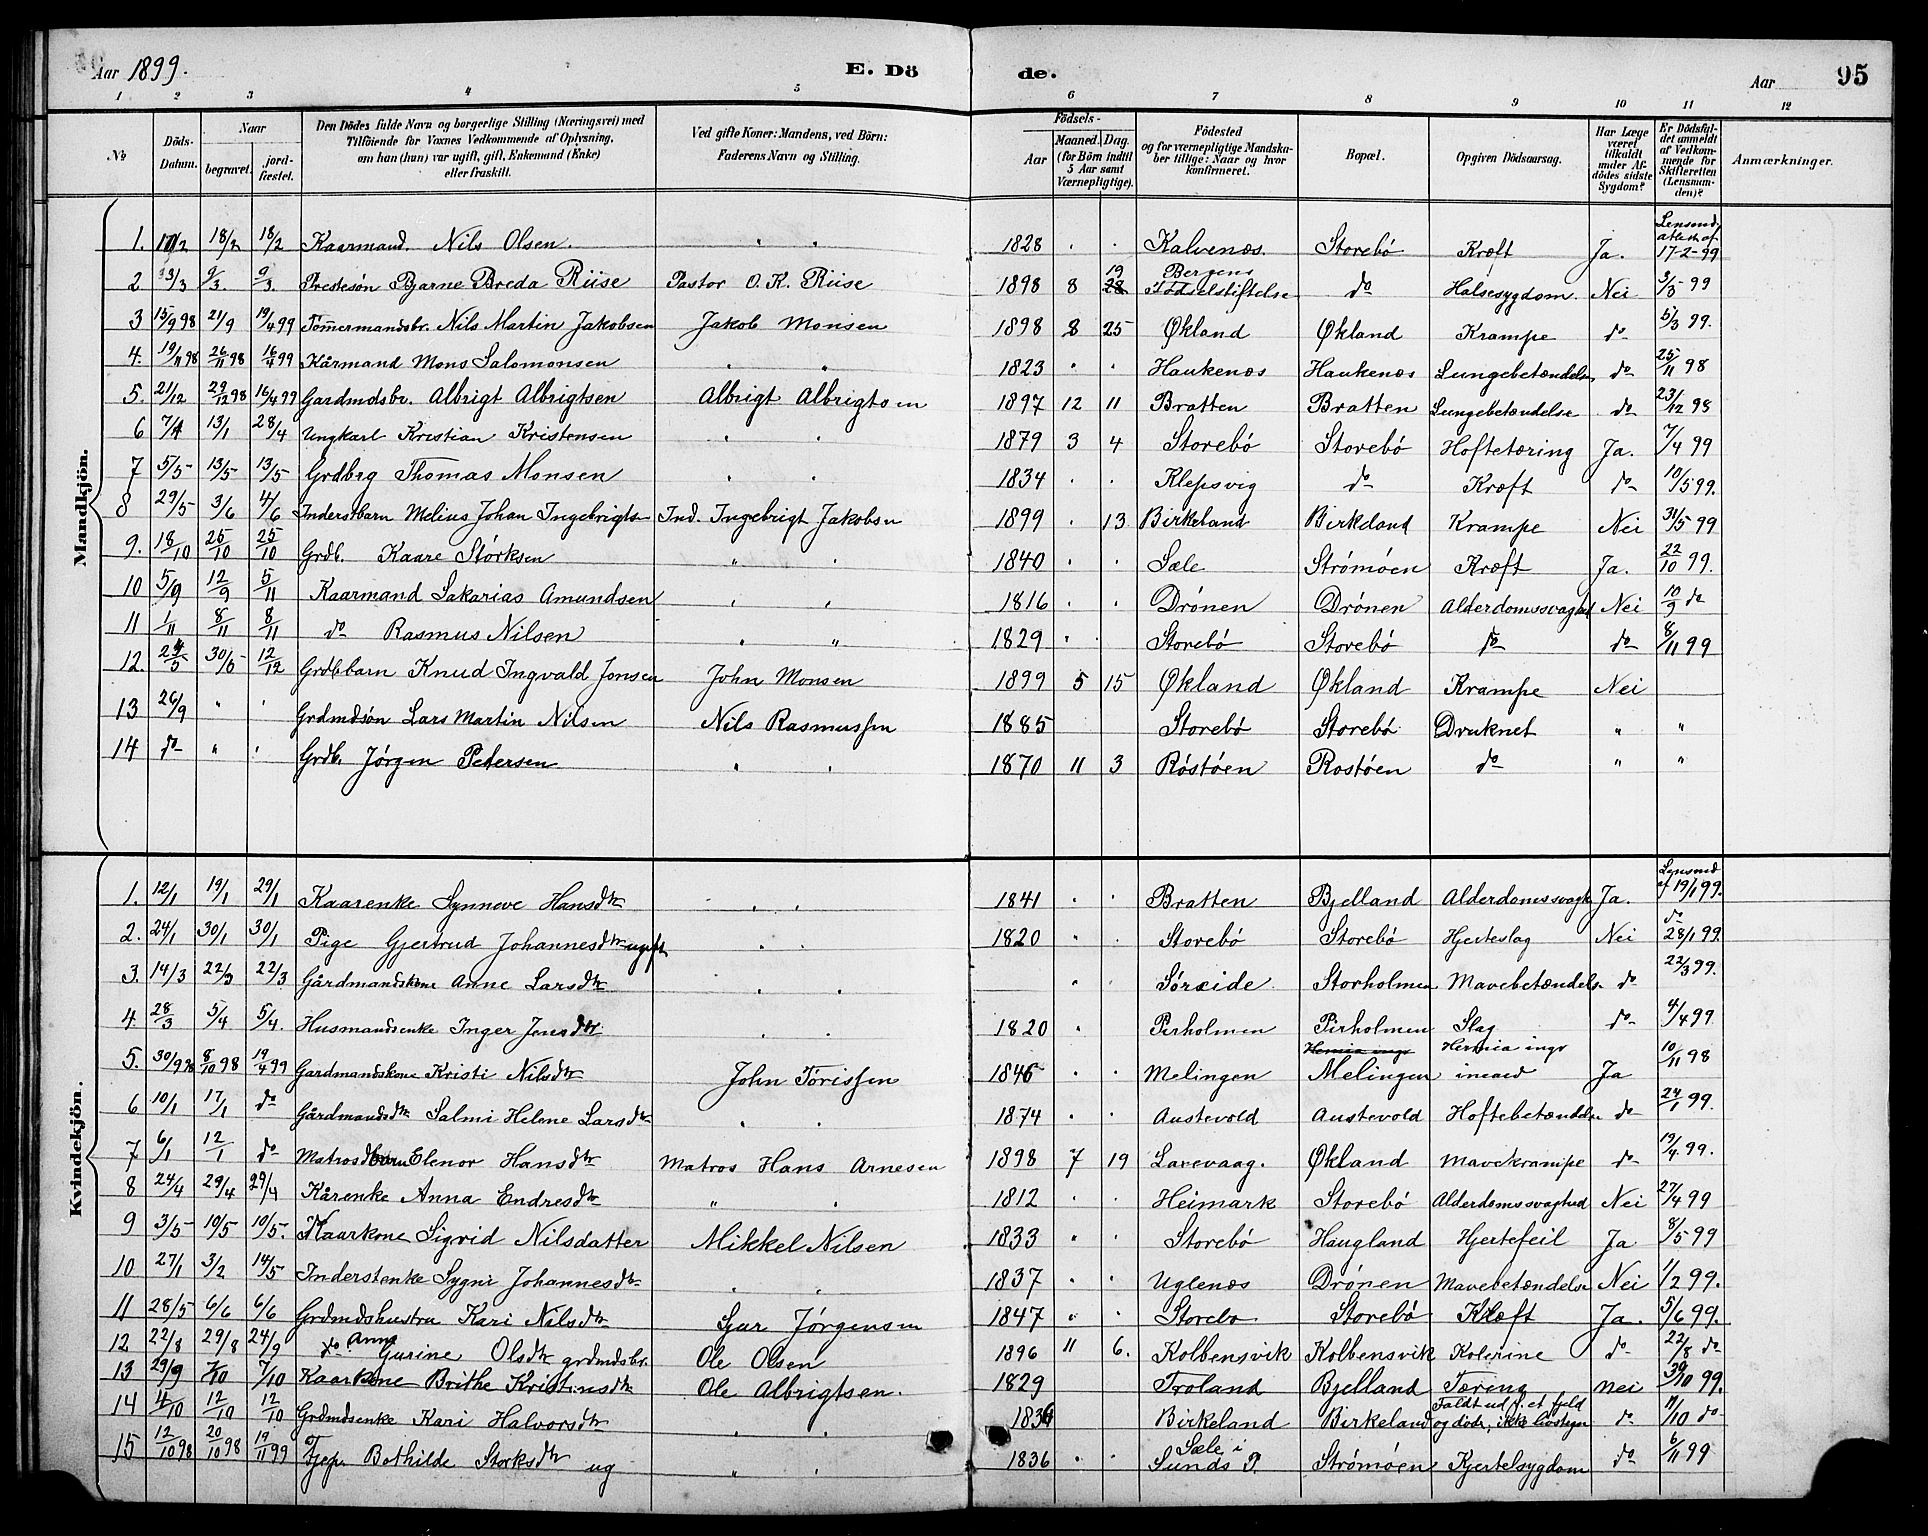 Aar 1899. E. Dö de. Aar 95
1 2 3 4 5 6 7 8 9 10 11 12
№ Döds-Datum. Naar begravet. jord-fæstet. Den Dödes fulde Navn og borgerlige Stilling (Næringsvei) med Tilföiende for Voxnes Vedkommende af Oplysning, om han (hun) var ugift, gift, Enkemand (Enke) eller fraskilt. Ved gifte Koner: Mandens, ved Börn: Faderens Navn og Stilling. Födsels- Aar Maaned. Dag. (for Börn indtil 5 Aar samt Værnepligtige). Födested og for værnepligtige Mandskaber tillige: Naar og hvor konfirmeret. Bopæl. Opgiven Dödsaarsag. Har Læge været tilkaldt under Afdödes sidste Sygdom? Er Dödsfaldet anmeldt af Vedkommende for Skifteretten (Lensmanden)? Anmærkninger.
Mandkjön.
1. 17/2 18/2 18/2 Kaarmand. Nils Olsen. " " 1828 " " Kalvenæs. Storebö Kræft Ja. 17-2-99
2 3/3 9/3. 9/3 Prestesön Bjarne Breda Riise Pastor O. K. Riise 1898 8 19 Bergens Födselstiftelse do Halsesygdom. Nei 3/3-99
3 15/9 98 21/9 19/4 99 Tömmermandsbr. Nils Martin Jakobsen Jakob Monsen 1898 8 25 Økland Økland Krampe do 5/3 99.
4. 19/11 98 26/11 98 16/4 99 Kårmand Mons Salomonsen " " 1823 " " Haukenæs Haukenæs Lungebetændelse do 25/11 98
5. 21/12 29/12 98 16/4 99 Gardmdsbr. Albrigt Albrigtsen Albrigt Albrigtsen 1897 12 11 Bratten Bratten Lungebetændelse do 23/12 98
6 7/4 13/1 28/4 Ungkarl Kristian Kristensen " " 1879 3 4 Storebö Storebö Hoftetæring Ja. 7/4 99
7 5/5 13/5 13/5 Grdbrg Thomas Monsen " " 1834 " " Klepsvig do Kræft do 10/5 99.
8 29/5 3/6 4/6 Inderstbarn Melius Johan Ingebrigts Ind. Ingebrigt Jakobsn 1899 " 13 Birkeland Birkeland Krampe Nei 31/5 99
9. 18/10 25/10 25/10 Grdb. Kaare Störksen " " 1840 " " Sæle Strömöen Kræft Ja. 22/10 99.
10 5/9 12/9 5/11 Kaarmand Sakarias Amundsen " " 1816 " " Drönen Drönen Alderdomssvaghed Nei 10/9 do
11 1/11 8/11 8/11 do Rasmus Nilsen " " 1829 " Storebö Storebö do do 8/11 99
12. 24/5 30/5 12/12 Grdbbarn Knud Ingvald Jonsen John Monsen 1899 5 15 Økland Økland Krampe Nei
13 26/9 " " Grdmdsön Lars Martin Nilsen Nils Rasmussen 1885 Storebö Storebö Druknet " "
14 do " " Grdb. Jörgen Petersen " " 1870 11 3 Röstöen Rostöen do " "
Kvindekjön.
1. 12/1 19/1 29/1 Kaarenke Synneve Hansdtr " " 1841 " " Bratten Bjelland Alderdomssvagh Ja. 19/1 99.
2. 24/1 30/1 30/1 Pige Gjertrud Johannesdtr ugift " " 1820 " " Storebö Storebö Hjerteslag Nei do 28/1 99.
3. 14/3 22/3 22/3 Gårdmandskone Anne Larsdtr " " " " Söreide Storholmen Mavebetændels. do 22/3 99.
4. 28/3 5/4 5/4. Husmandsenke Inger Jensdtr " " 1820 " Pirholmen Pirholmen Slag do 4/4 99
5. 30/9 98 8/10 98 19/4 99 Gardmandskone Kristi Nilsdtr John Törissen 1846 " " Melingen Melingen Hernia ingv incard Ja 10/11 98
6 10/1 17/1 do Gårdmandsdtr Salmi Helene Larsdtr " " 1874 " " Austevold Austevold Hoftebetændelse do 24/1 99.
7 6/1 12/1 do Matrosdbarn Elenor Hansdtr Matros Hans Arnesen 1898 7 19 Larevaag. Økland Mavekrampe do 19/4 99.
8 24/4 29/4 29/4 Kårenke Anna Endresdtr " " 1812 " " Heimark Storebö Alderdomssvaghed Nei 27/4 99
9 3/5 10/5 10/5. Kaarkone Sigrid Nilsdatter Mikkel Nilsen 1833 " " Storebö Haugland Hjertefeil Ja 8/5 99
10 27/1 3/2 14/5 Inderstenke Sygni Johannesdtr " " 1837 " " Uglenæs Drönen Mavebetændelse Nei 1/2 99.
11 28/5 6/6 6/6 Grdmdshustru Kari Nilsdtr Sjur Jörgensen 1847 " " Storebö Storebö Kræft Ja. 5/6 99.
12 22/8 29/8 24/9 do Anna Gurine Olsdtr grdmdsbr. Ole Olsen 1896 11 6. Kolbensvik Kolbensvik Kolerine do 22/8 do
13 29/9 7/10 7/10 Kaarkone Brithe Kristensdtr Ole Albrigtsen. 1829 Troland Bjelland Tæring Nei 30/10 99.
14 4/10 12/10 12/10 Grdmdsenke Kari Halvorsdtr " " 1836 Birkeland Birkeland Faldt ud f. et fjeld og döde, ikke do 11/10 do
15 12/10 98 20/10 98 19/11 99 Tjep. Bothilde Storksdtr ug " " 1836 " " Sæle i Sunds P. Strömöen Kjertelsygdom do 6/11 99